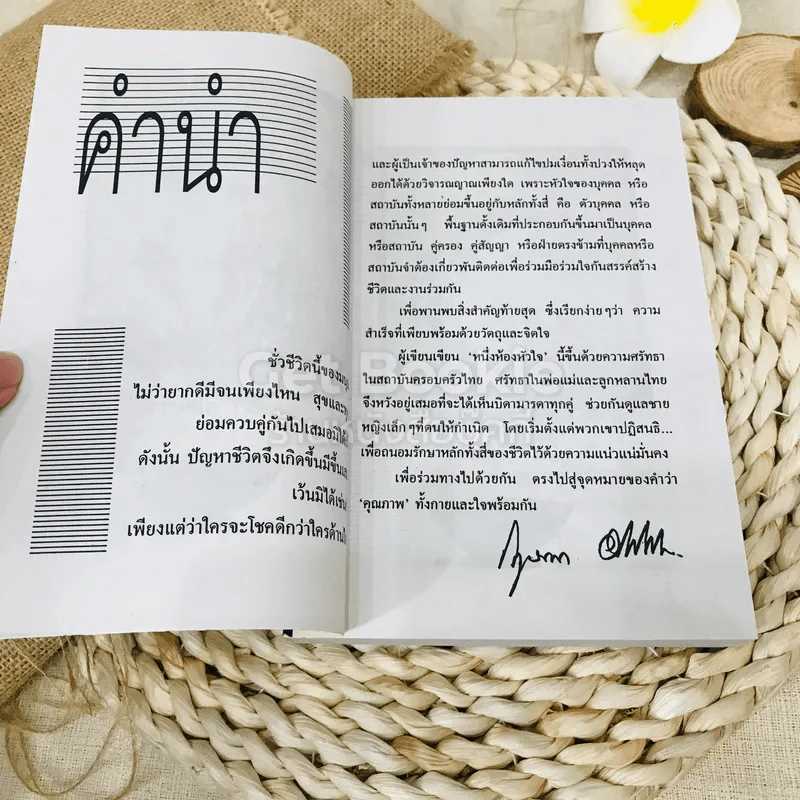 คำนำ
ชั่วชีวิตนี้ของ
ไม่ว่ายากดีมีจนเพียงไหน สุขและ
ย่อมควบคู่กันไปเสมอมิได้
ดังนั้น ปัญหาชีวิตจึงเกิดขึ้นมีขึ้น
เว้นมิได้เช่น
เพียงแต่ว่าใครจะโชคดีกว่าใครด้าน
และผู้เป็นเจ้าของปัญหาสามารถแก้ไขปมเงื่อนทั้งปวงให้หลุด
ออกได้ด้วยวิจารณญาณเพียงใด เพราะหัวใจของบุคคล หรือ
สถาบันทั้งหลายย่อมขึ้นอยู่กับหลักทั้งสี่ คือ ตัวบุคคล หรือ
สถาบันนั้นๆ พื้นฐานดั้งเดิมที่ประกอบกันขึ้นมาเป็นบุคคล
หรือสถาบัน คู่ครอง คู่สัญญา หรือฝ่ายตรงข้ามที่บุคคลหรือ
สถาบันจำต้องเกี่ยวพันติดต่อเพื่อร่วมมือร่วมใจกันสรรค์สร้าง
ชีวิตและงานร่วมกัน
เพื่อพานพบสิ่งสำคัญท้ายสุด ซึ่งเรียกง่ายๆว่า ความ
สำเร็จที่เพียบพร้อมด้วยวัตถุและจิตใจ
ผู้เขียนเขียน ‘หนึ่งห้องหัวใจ’ นี้ขึ้นด้วยความศรัทธา
ในสถาบันครอบครัวไทย ศรัทธาในพ่อแม่และลูกหลานไทย
จึงหวังอยู่เสมอที่จะได้เห็นบิดามารดาทุกคู่ ช่วยกันดูแลชาย
หญิงเล็กๆที่ตนให้กำเนิด โดยเริ่มตั้งแต่พวกเขาปฏิสนธิ...
เพื่อถนอมรักษาหลักทั้งสี่ของชีวิตไว้ด้วยความแน่วแน่มั่นคง
เพื่อร่วมทางไปด้วยกัน ตรงไปสู่จุดหมายของคำว่า
‘คุณภาพ’ ทั้งกายและใจพร้อมกัน
Get Bookie